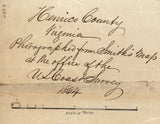 Henrico County
Virginia
Photographed from Smith's Map
at the office of the
US Coast Survey
1864